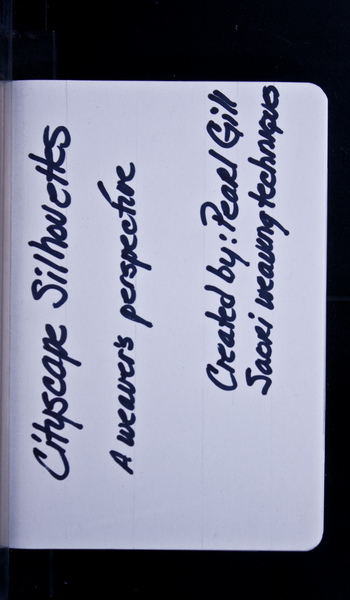 Cityscape Silhouettes
A weaver's perspective
Created by: Pearl Gill
Saori weaving techniques